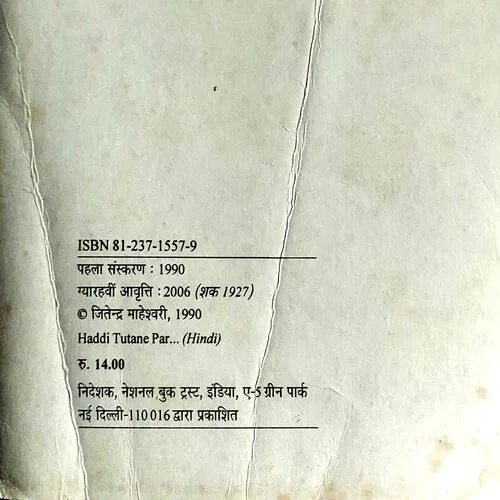 ISBN 81-237-1557-9
पहला संस्करण : 1990
ग्यारहवीं आवृत्ति : 2006 (शक 1927)
© जितेन्द्र माहेश्वरी, 1990
Haddi Tutane Par... (Hindi)
रु. 14.00
निदेशक, नेशनल बुक ट्रस्ट, इंडिया, ए-5 ग्रीन पार्क
नई दिल्ली-110 016 द्वारा प्रकाशित